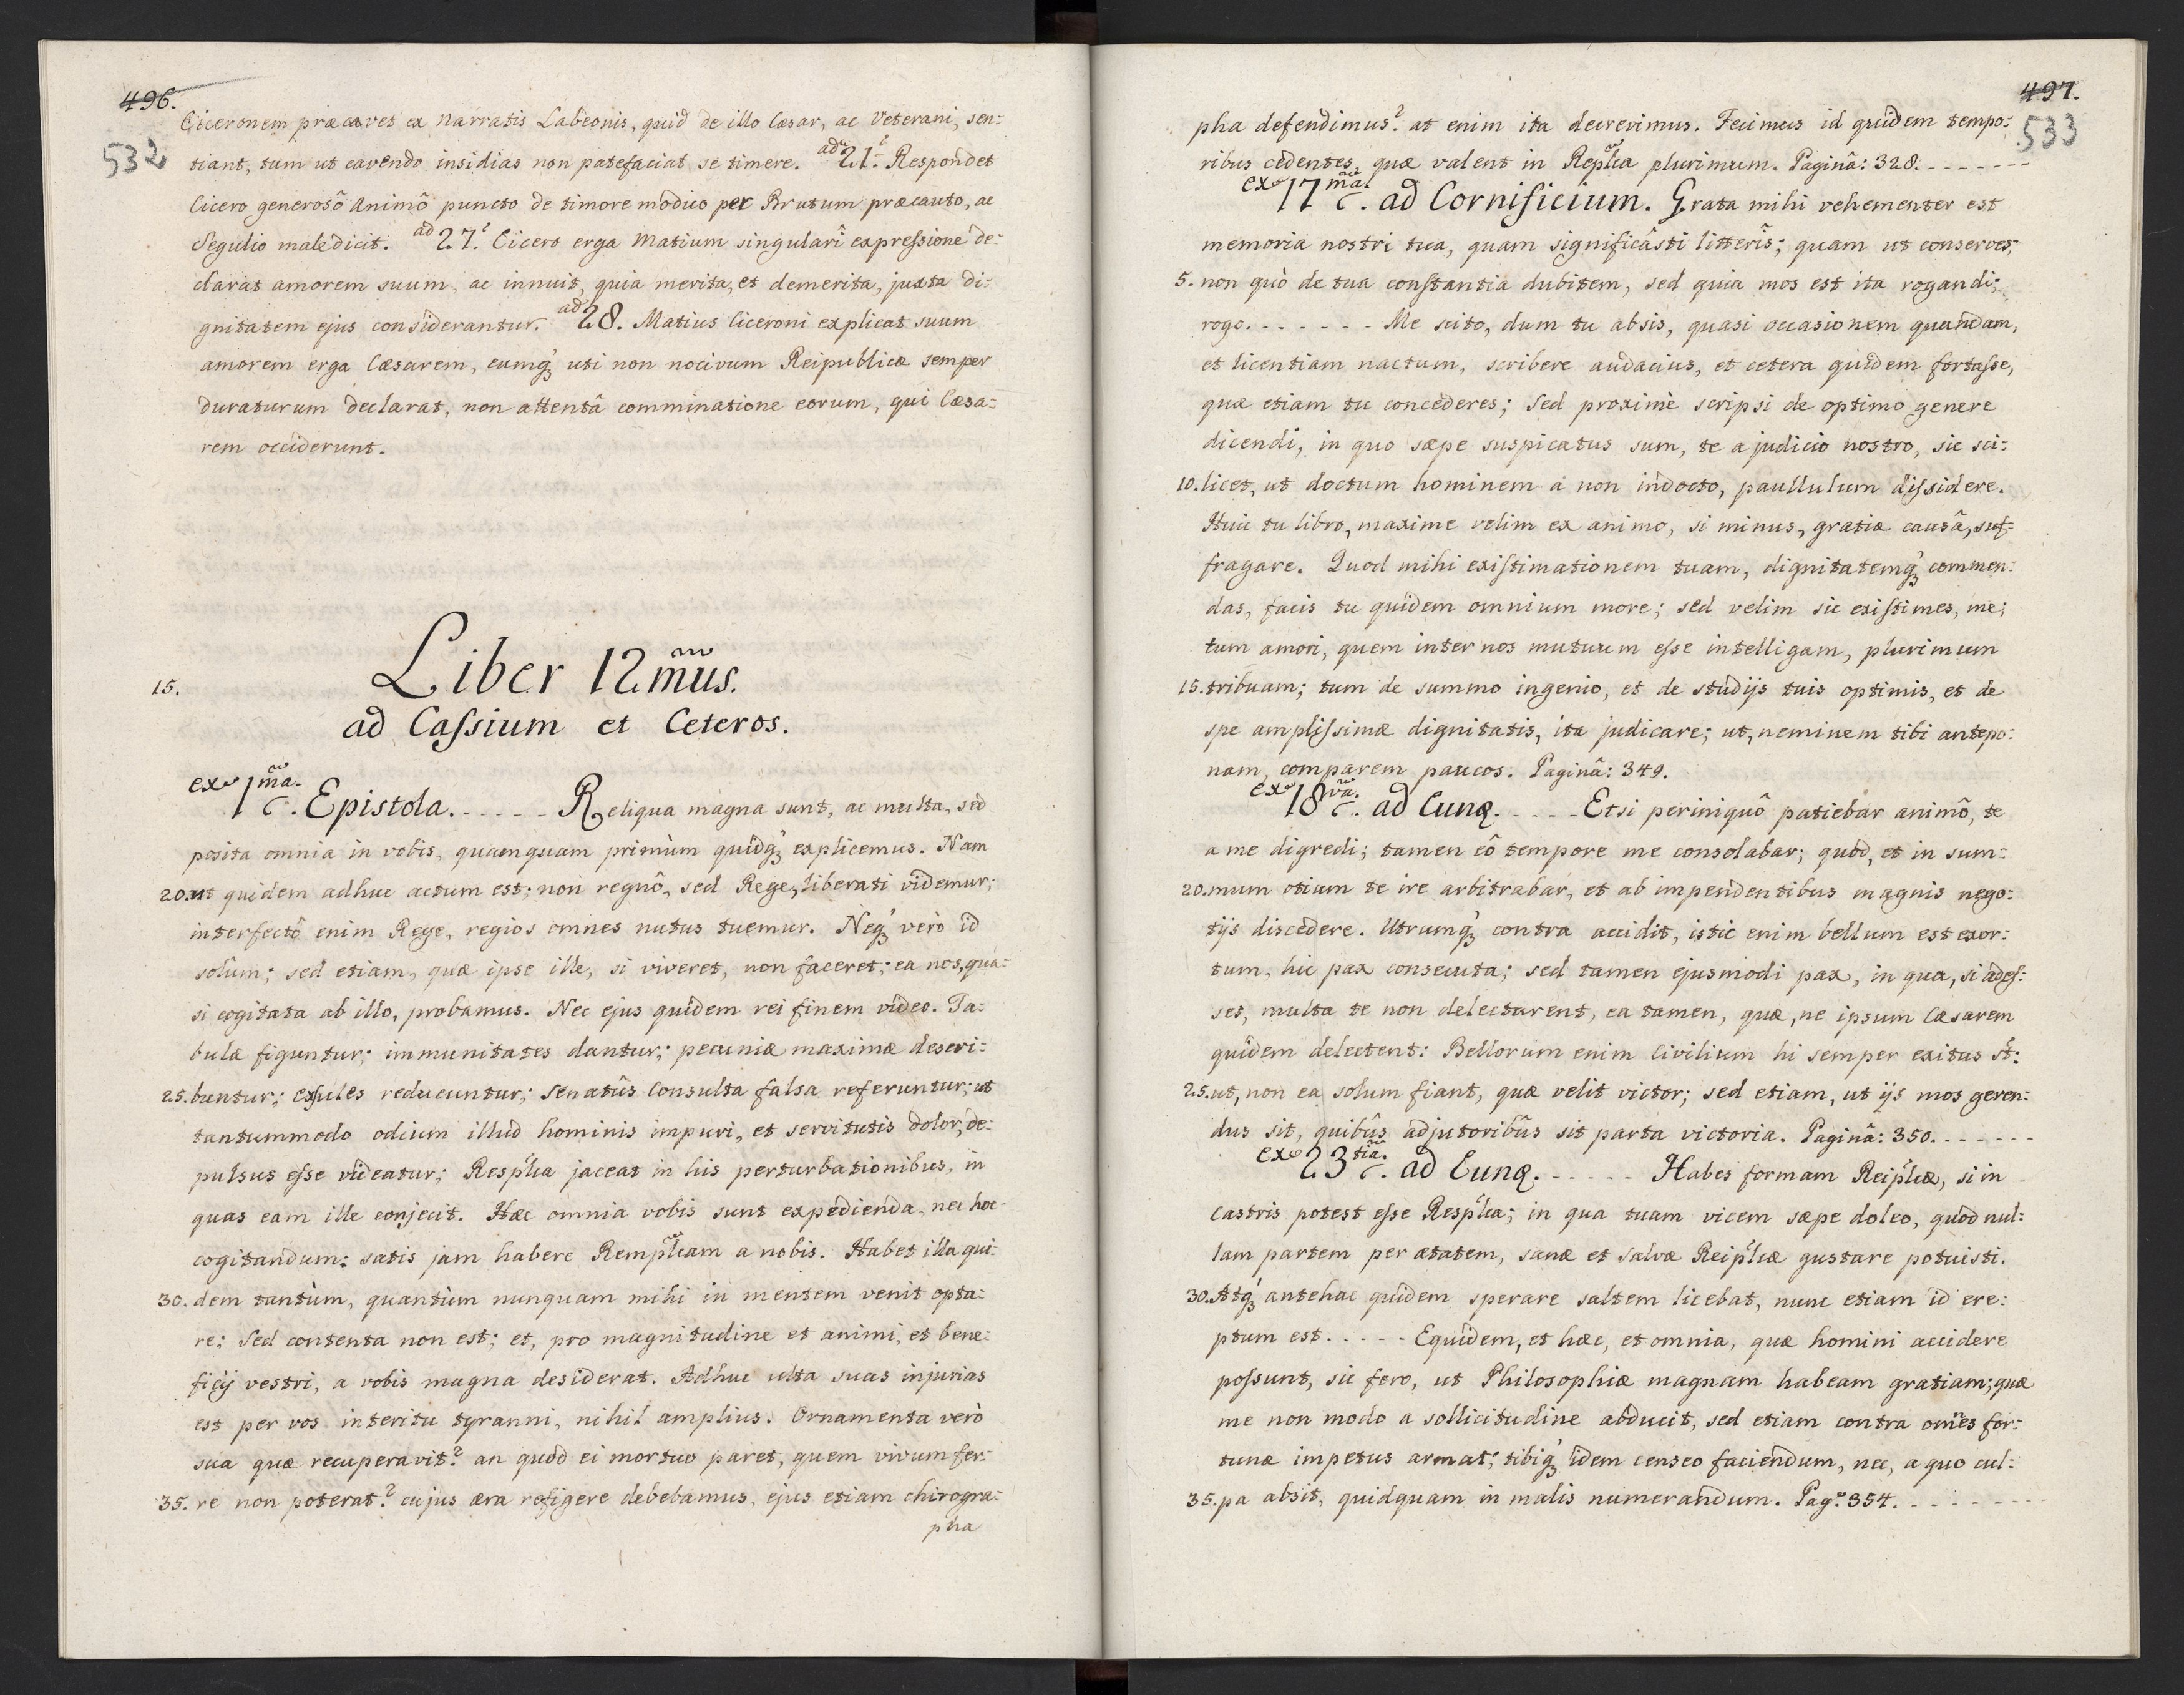 496.
532
Ciceronem præcavet ex narratis Labeonis, quid de illo Cæsar, ac Veterani, sen:
tiant, tum ut cavendo insidias non patefaciat se timere. ad 21. Respondet
Cicero generosô animô puncto de timore modico per Brutum præcauto, ac
Segulio maledicit. ad 27. Cicero erga Matium singulari expressione de:
clarat amorem suum, ac innuit, quia merita, et demerita, juxta di:
gnitatem ejus considerantur. ad 28. Matius Ciceroni explicat suum
amorem erga Cæsarem, eumq́ꝫ uti non nocivum Reipublicæ semper
duraturum declarat, non attentâ comminatione eorum, qui Cæsa:
rem occiderunt.
15. Liber 12mus.
ad Caſsium et Ceteros.
ex 1ma. Epistola. - - - - - Reliqua magna sunt, ac multa, sed
posita omnia in vobis, quamquam primùm quidq́ꝫ explicemus. Nam
20. ut quidem adhuc actum est; non regnô, sed Rege, liberati videmur;
interfectô enim Rege, regios omnes nutus tuemur. Neq́ꝫ verò id
solùm; sed etiam, quæ ipse ille, si viveret, non faceret; ea nos, qua:
si cogitata ab illo, probamus. Nec ejus quidem rei finem video. Ta:
bulæ figuntur; immunitates dantur; pecuniæ maximæ descri:
25. buntur; exſules reducuntur; senatûs Consulta falsa referuntur; ut
tantummodo odium illud hominis impuri, et servitutis dolor, de:
pulsus eſse videatur; Resplca jaceat in his perturbationibus, in
quas eam ille conjecit. Hæc omnia vobis sunt expedienda, nec hoc
cogitandum: satis jam habere Remplcam a nobis. Habet illa qui:
30. dem tantùm, quantùm nunquam mihi in mentem venit opta:
re; Sed contenta non est; et, pro magnitudine et animi, et bene:
ficij vestri, a vobis magna desiderat. Adhuc ulta suas injurias
est per vos interitu tyranni, nihil amplius. Ornamenta verò
sua quæ recuperavit? an quod ei mortuo paret, quem vivum fer:
35. re non poterat? cujus æra refigere debebamus, ejus etiam chirogra:
pha
497.
533
pha defendimus? at enim ita decrevimus. Fecimus id quidem tempo:
ribus cedentes, quæ valent in Replca plurimum. Paginâ: 328. - - - - - -
ex 17mâ. ad Cornificium. Grata mihi vehementer est
memoria nostri tua, quam significâsti litteris; quam ut conserves;
5. non quò de tua conſtantia dubitem, sed quia mos est ita rogandi;
rogo. - - - - - - Me scito, dum tu absis, quasi occasionem quandam,
et licentiam nactum, scribere audacius, et cetera quidem fortaſse,
quæ etiam tu concederes; sed proximè scripsi de optimo genere
dicendi, in quo sæpe suspicatus sum, te a judicio nostro, sic sci:
10. licet, ut doctum hominem a non indocto, paullulum diſsidere.
Huic tu libro, maxime velim ex animo, si minus, gratiæ causâ, suf:
fragare. Quod mihi exiſtimationem tuam, dignitatemq́ꝫ commen:
das, facis tu quidem omnium more; sed velim sic exiſtimes, me;
tum amori, quem inter nos mutuum eſse intelligam, plurimum
15. tribuam; tum de summo ingenio, et de studijs tuis optimis, et de
spe ampliſsimæ dignitatis, ita judicare; ut, neminem tibi antepo:
nam, comparem paucos. Paginâ: 349.
ex 18vâ. ad Eund. - - - - Etsi periniquô patiebar animô, te
a me digredi; tamen eô tempore me consolabar; quod, et in sum:
20. mum otium te ire arbitrabar, et ab impendentibus magnis nego:
tijs discedere. Utrumq́ꝫ contra accidit, istic enim bellum est exor:
tum, hic pax consecuta; sed tamen ejusmodi pax, in qua, si adeſ:
ses, multa te non delectarent, ea tamen, quæ, ne ipsum Cæsarem
quidem delectent: Bellorum enim Civilium hi semper exitus st:
25. ut, non ea solum fiant, quæ velit victor; sed etiam, ut ijs mos geren:
dus sit, quibûs adjutoribûs sit parta victoria. Paginâ: 350. - - - - - -
ex 23tiâ. ad Eund. - - - - - Habes formam Reiplcæ, si in
Castris potest eſse Resplca; in qua tuam vicem sæpe doleo, quod nul:
lam partem per ætatem, sanæ et salvæ Reiplcæ gustare potuisti.
30. Atq́ꝫ antehac quidem sperare saltem licebat, nunc etiam id ere:
ptum est. - - - - Equidem, et hæc, et omnia, quæ homini accidere
poſsunt, sic fero, ut Philosophiæ magnam habeam gratiam; quæ
me non modo a sollicitudine abducit, sed etiam contra omẽs for:
tunæ impetus armat; tibiq́ꝫ idem censeo faciendum, nec, a quo cul:
35. pa absit, quidquam in malis numerandum. Pag: 354. - - - - - - -